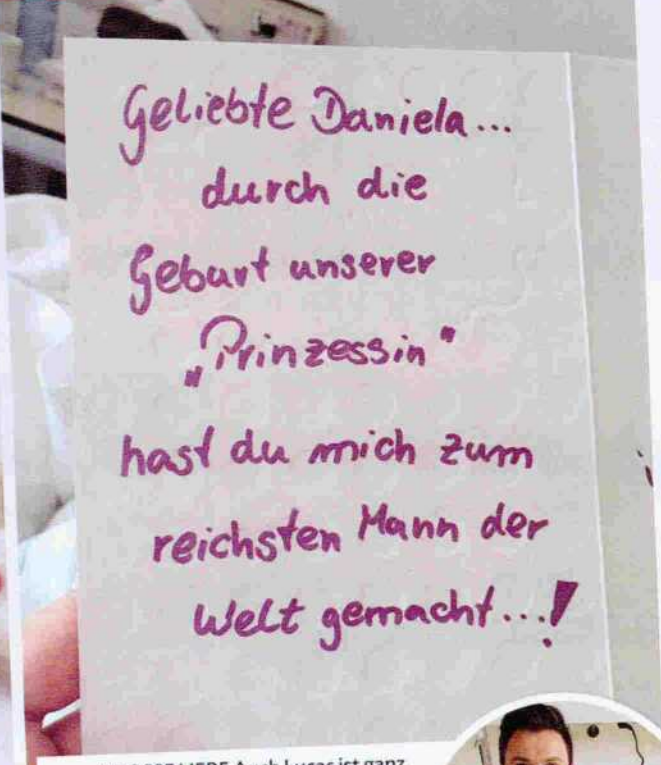 Geliebte Daniela...
durch die
Geburt unserer
„Prinzessin"
hast du mich zum
reichsten Mann der
Welt gemacht...!
Lucas ist ganz